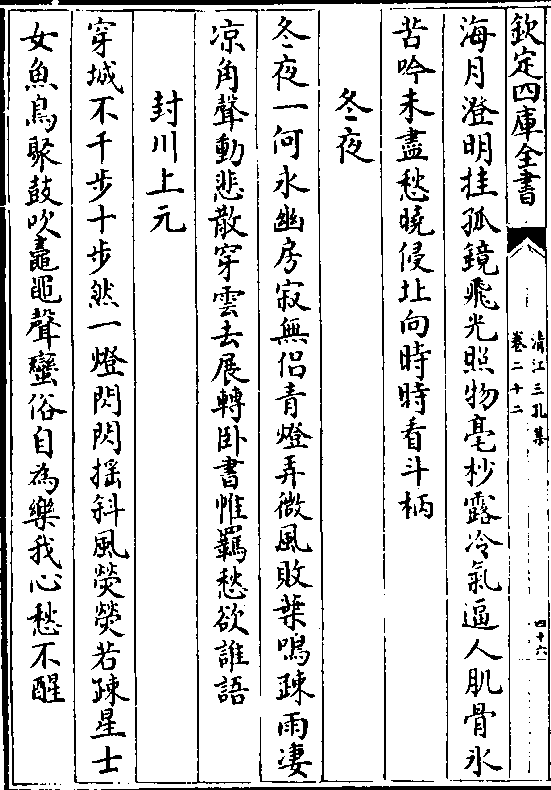 欽定四庫全書
清江三孔集
卷二十二
四十六
海月澄明挂孤鏡飛光照物毫杪露冷氣逼人肌骨氷
苦吟未盡愁曉侵北向時時看斗柄
冬夜
冬夜一何永幽房寂無侣青燈弄微風敗葉鳴疎雨凄
凉角聲動悲散穿雲去展轉卧書帷羈愁欲誰語
封川上元
穿城不千步十步然一燈閃閃揺斜風熒熒若疎星士
女魚鳥聚鼓吹鼃黽聲蠻俗自為樂我心愁不醒